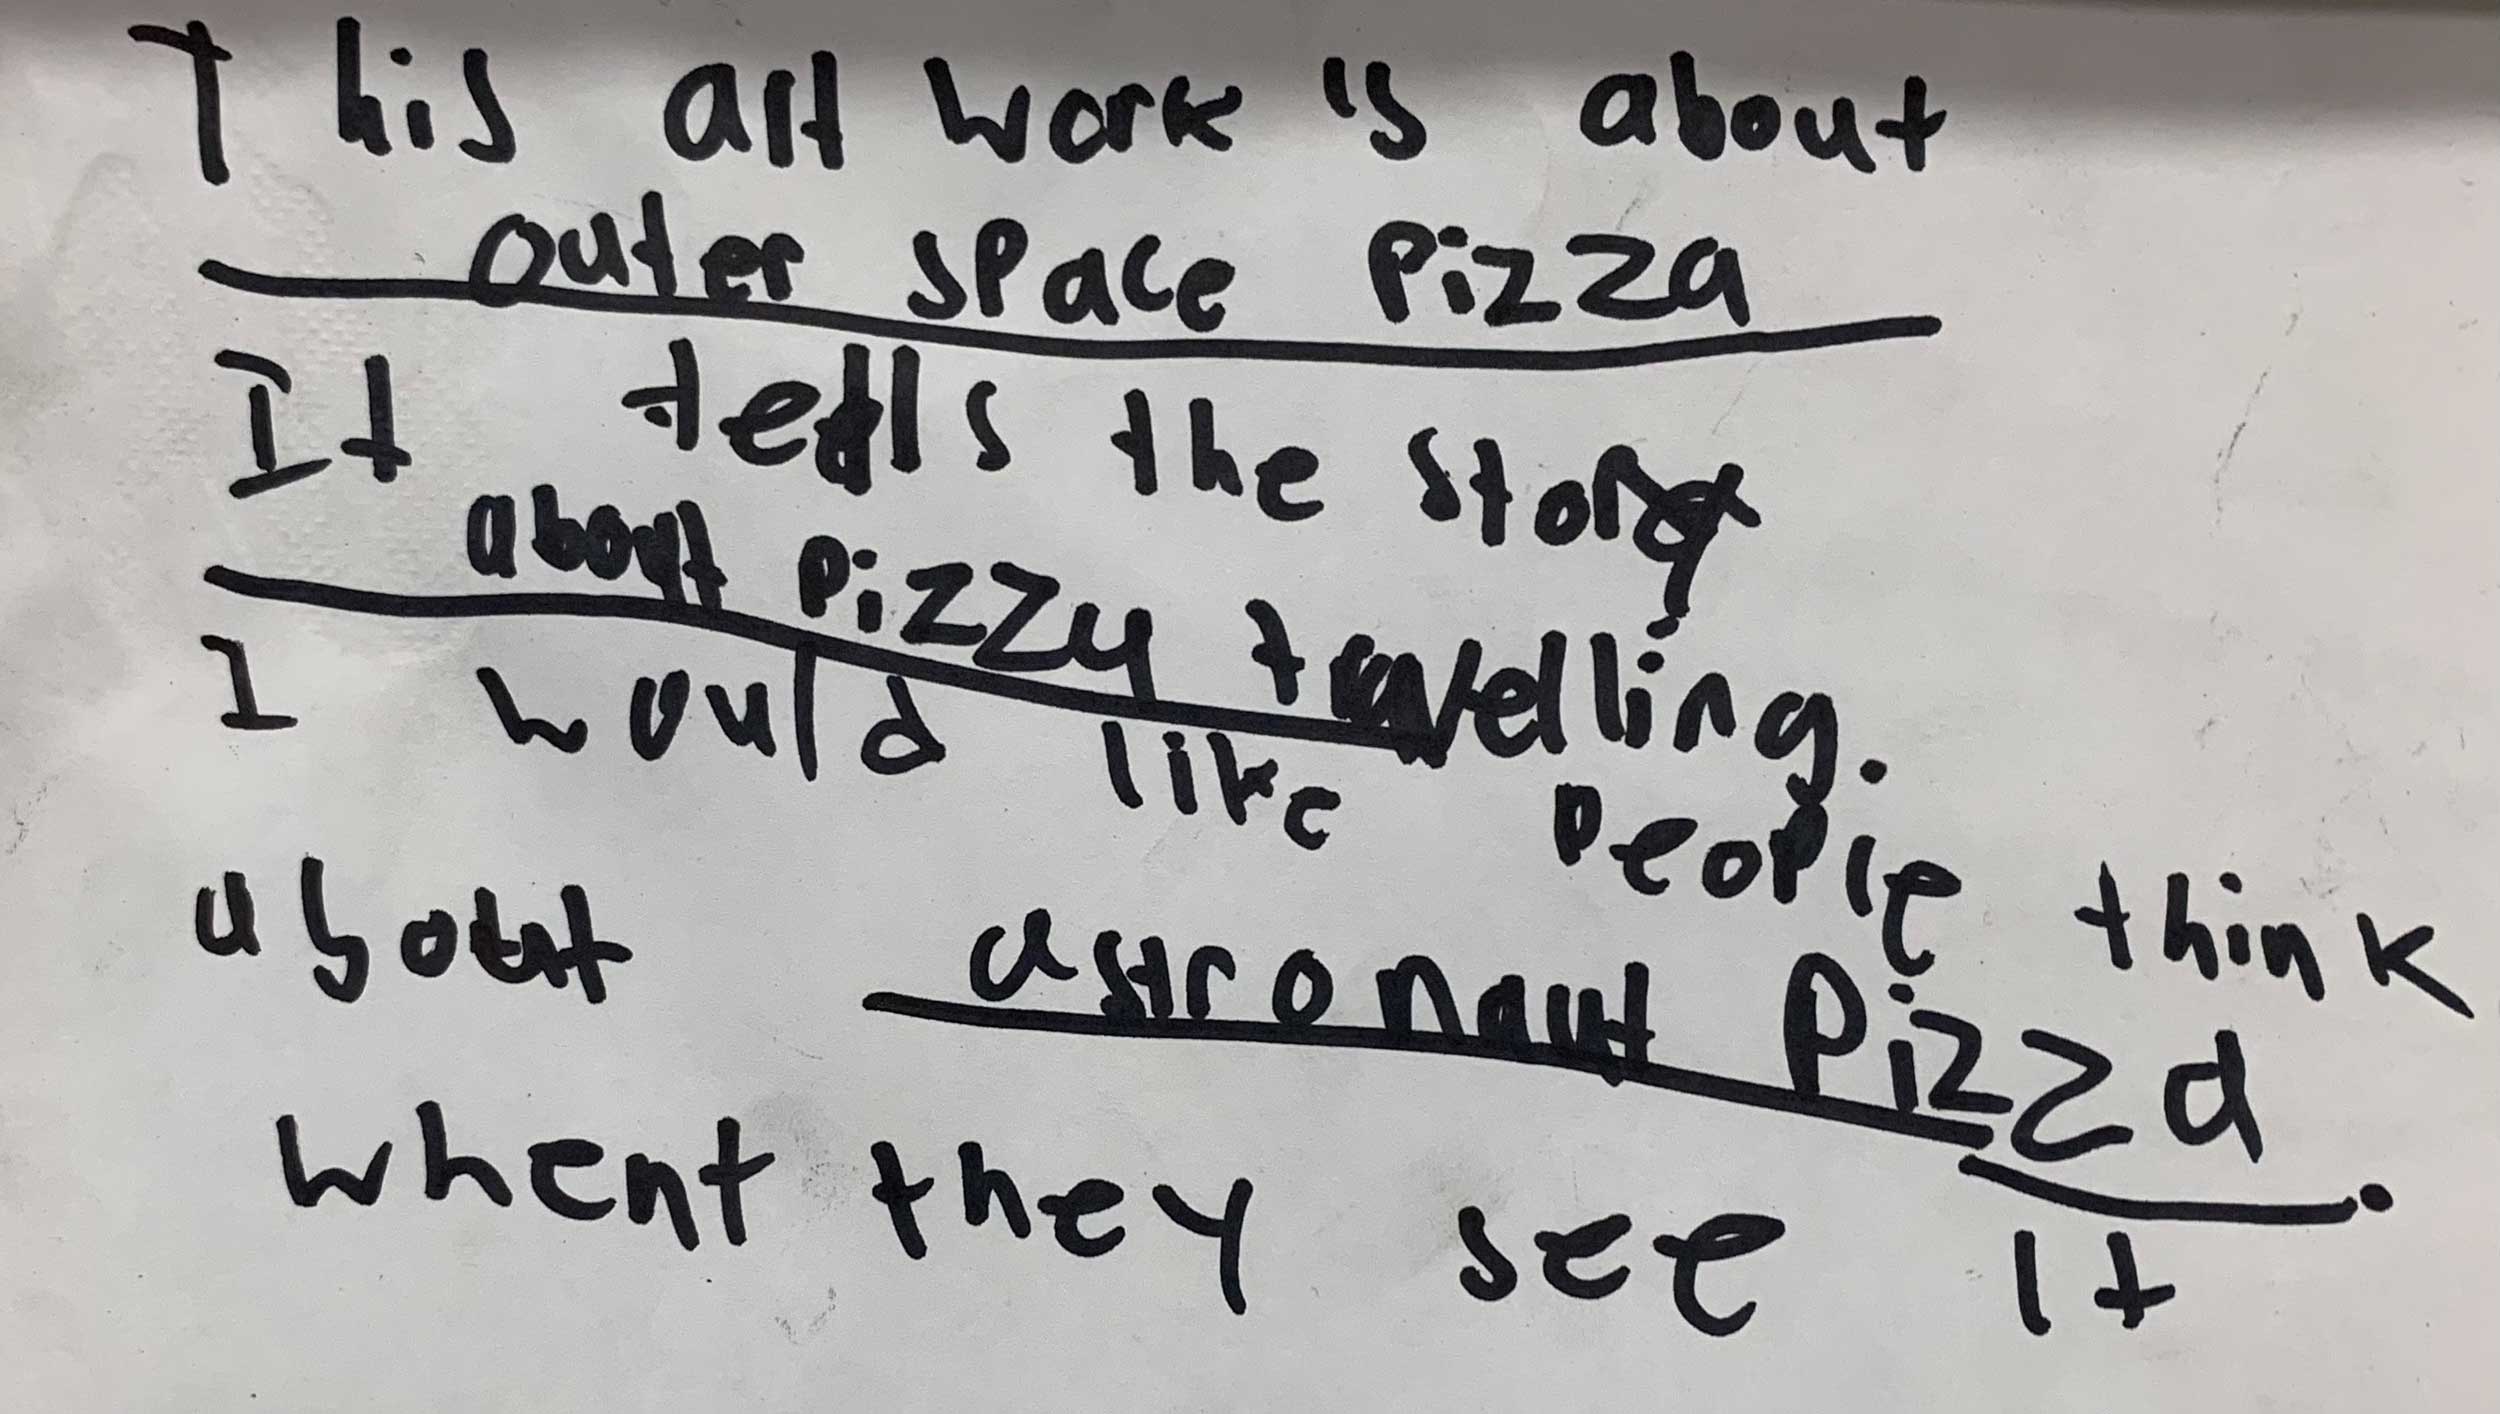 This art work is about
outer space pizza
It tells the story
about pizzy travelling.
I would like people think
about astronaut pizza.
whent they see it